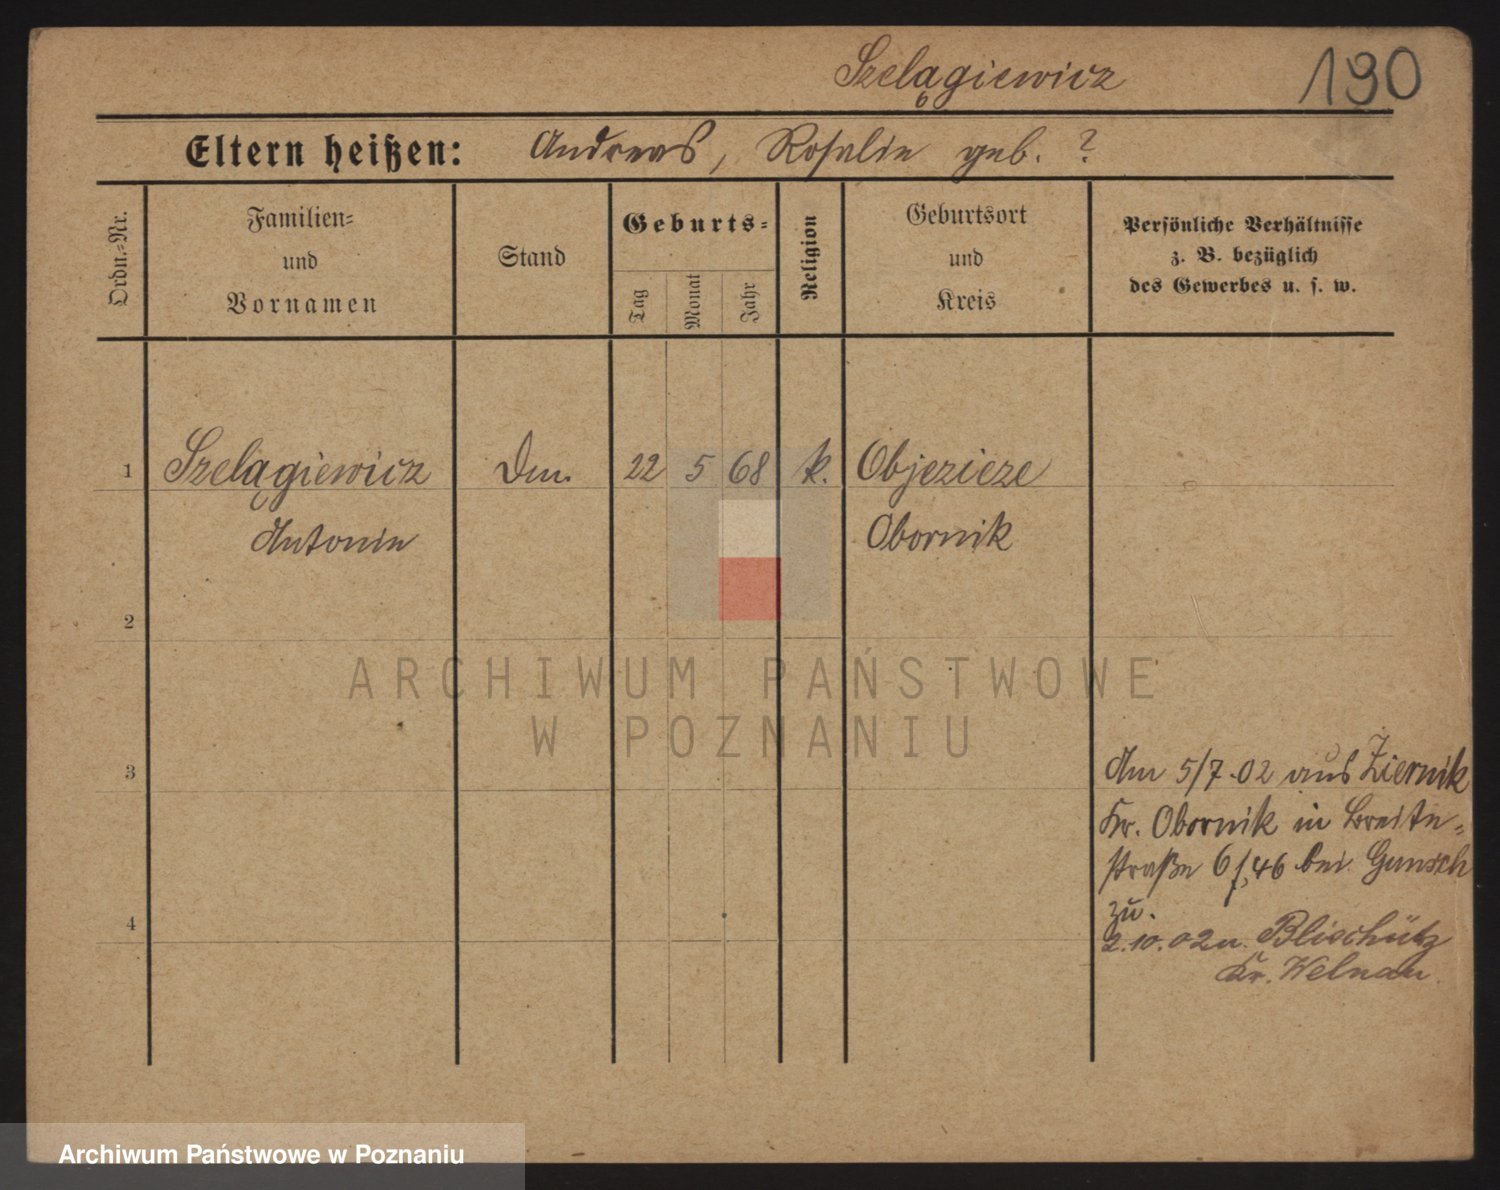 Szelągiewicz
190
Eltern heißen: Andreas, Rosalie geb. ?
Ordn.-Nr.
Familien-
und
Vornamen
Stand
Geburts-
Tag
Monat
Jahr
Religion
Geburtsort
und
Kreis
Persönliche Verhältnisse
z. B. bezüglich
des Gewerbes u. s. w.
1 Szelągiewicz 22 5 68 k. Objezieze
Antonie Obornik
2
3
4
Am 5/7.02 aus Ziernik
Kr. Obornik in Breite-
straße 6/46 bei Gunsch
zu.
2.10.02 n. Blischütz
Kr. Welnau.
ARCHIWUM PAŃSTWOWE
W POZNANIU
Archiwum Państwowe w Poznaniu